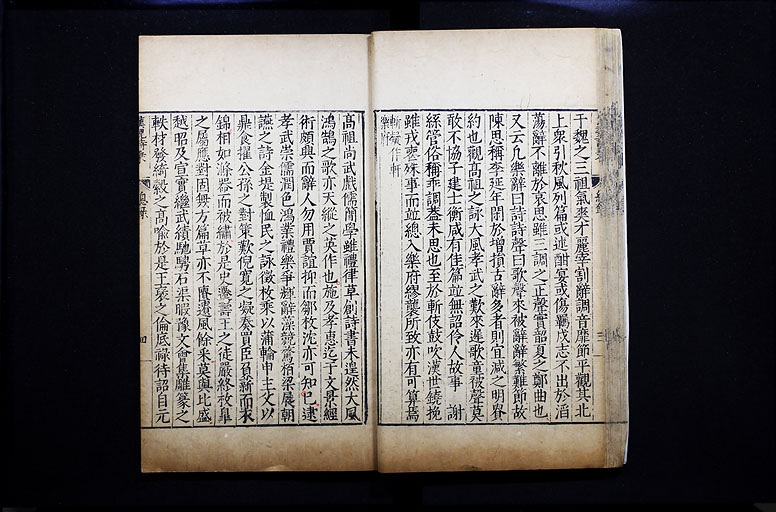 于魏之三祖氣爽才麗宰割辭調音靡節平觀其北
上衆引秋風列篇或述酣宴或傷羈戍志不出於滔
蕩辭不離於哀思雖三調之正聲實韶夏之鄭曲也
又云凡樂辭曰詩詩聲曰歌聲來被辭辭繁難節故
陳思稱李延年閑於增損古辭多者則宜減之明貴
約也觀高祖之詠大風孝武之歎來遲歌童被聲莫
敢不協子建士衡咸有佳篇並無詔伶人故事 謝
絲管俗稱乖調蓋未思也至於斬伎鼓吹漢世鐃挽
雖戎喪殊事而並總入樂府繆襲所致亦有可算焉
斬疑作軒
高祖尚武戲儒簡學雖禮律草創詩書未遑然大風
鴻鵠之歌亦天縱之英作也施及孝惠迄于文景經
術頗興而辭人勿用賈誼抑而鄒枚沈亦可知已逮
孝武崇儒潤色鴻業禮樂爭輝辭藻競騖柏梁展朝
讌之詩金堤製恤民之詠徵枚乘以蒲輪申主父以
鼎食擢公孫之對策歎倪寬之疑奏買臣負薪而衣
錦相如滌器而被繡於是史遷壽王之徒嚴終枚臯
之屬應對固無方篇章亦不匱遺風餘采莫與比盛
越昭及宣實繼武績馳騁石渠暇豫文會集雕篆之
軼材發綺縠之高喻於是王褒之倫底祿待詔自元
四